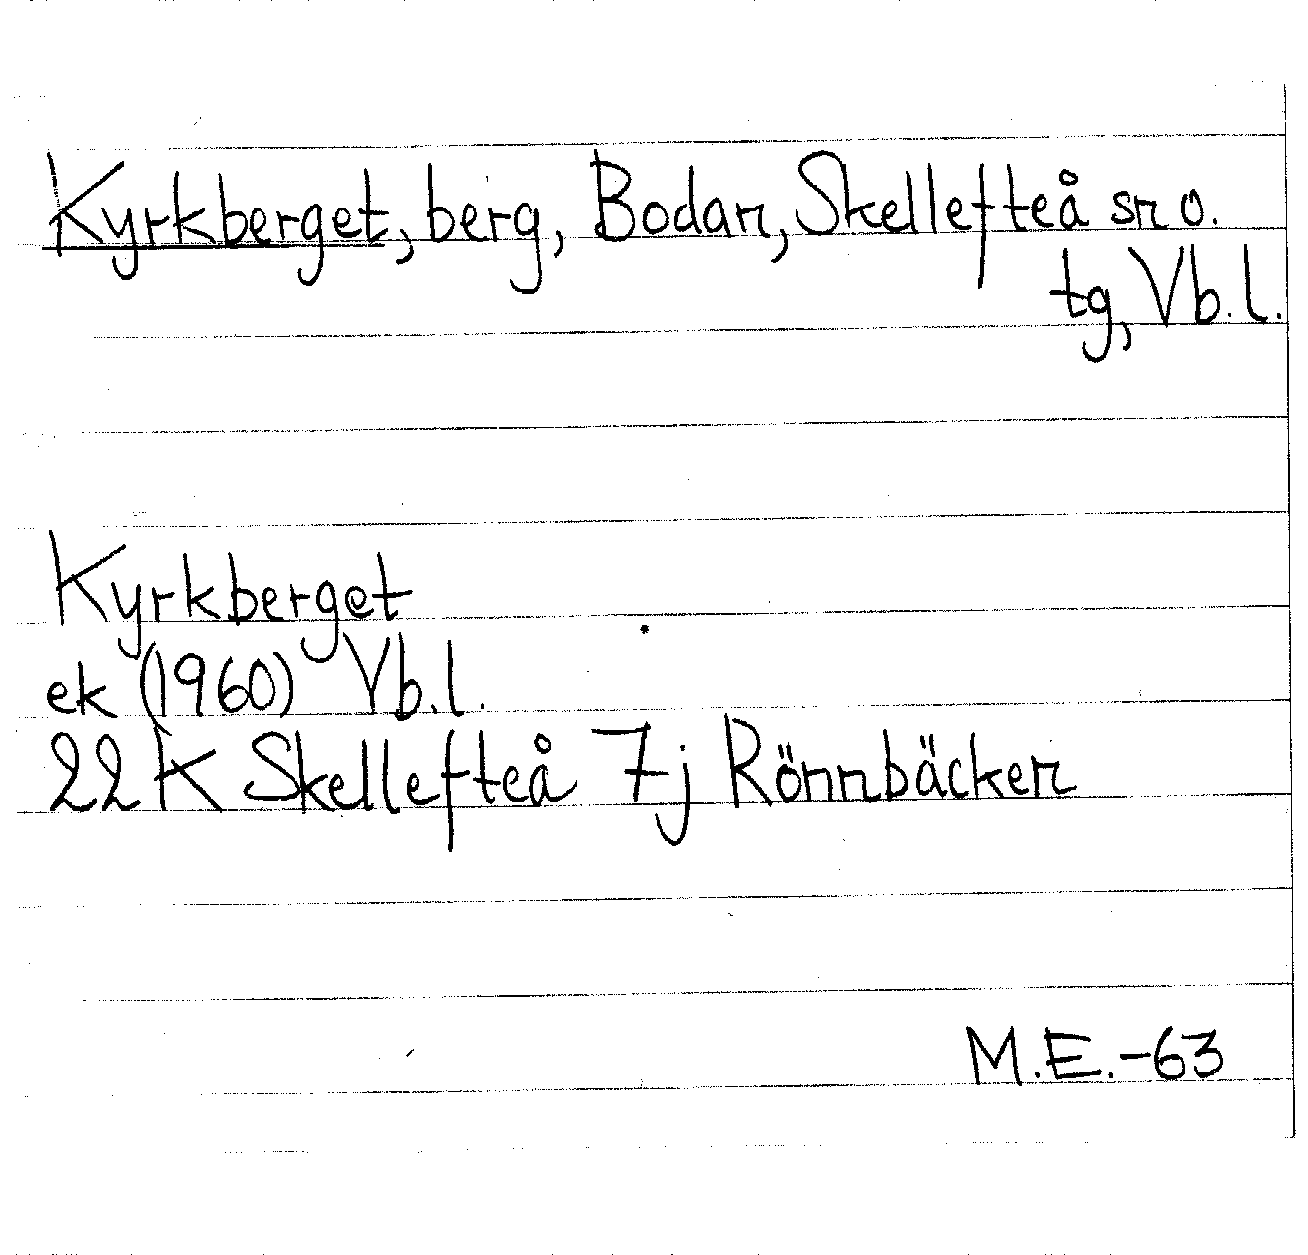 Kyrkberget, berg, Bodan, Skellefteå sn o.
tg, Vb.l.
Kyrkberget
ek (1960) Vb.l.
22K Skellefteå 7j Rönnbäcken
M.E.-63